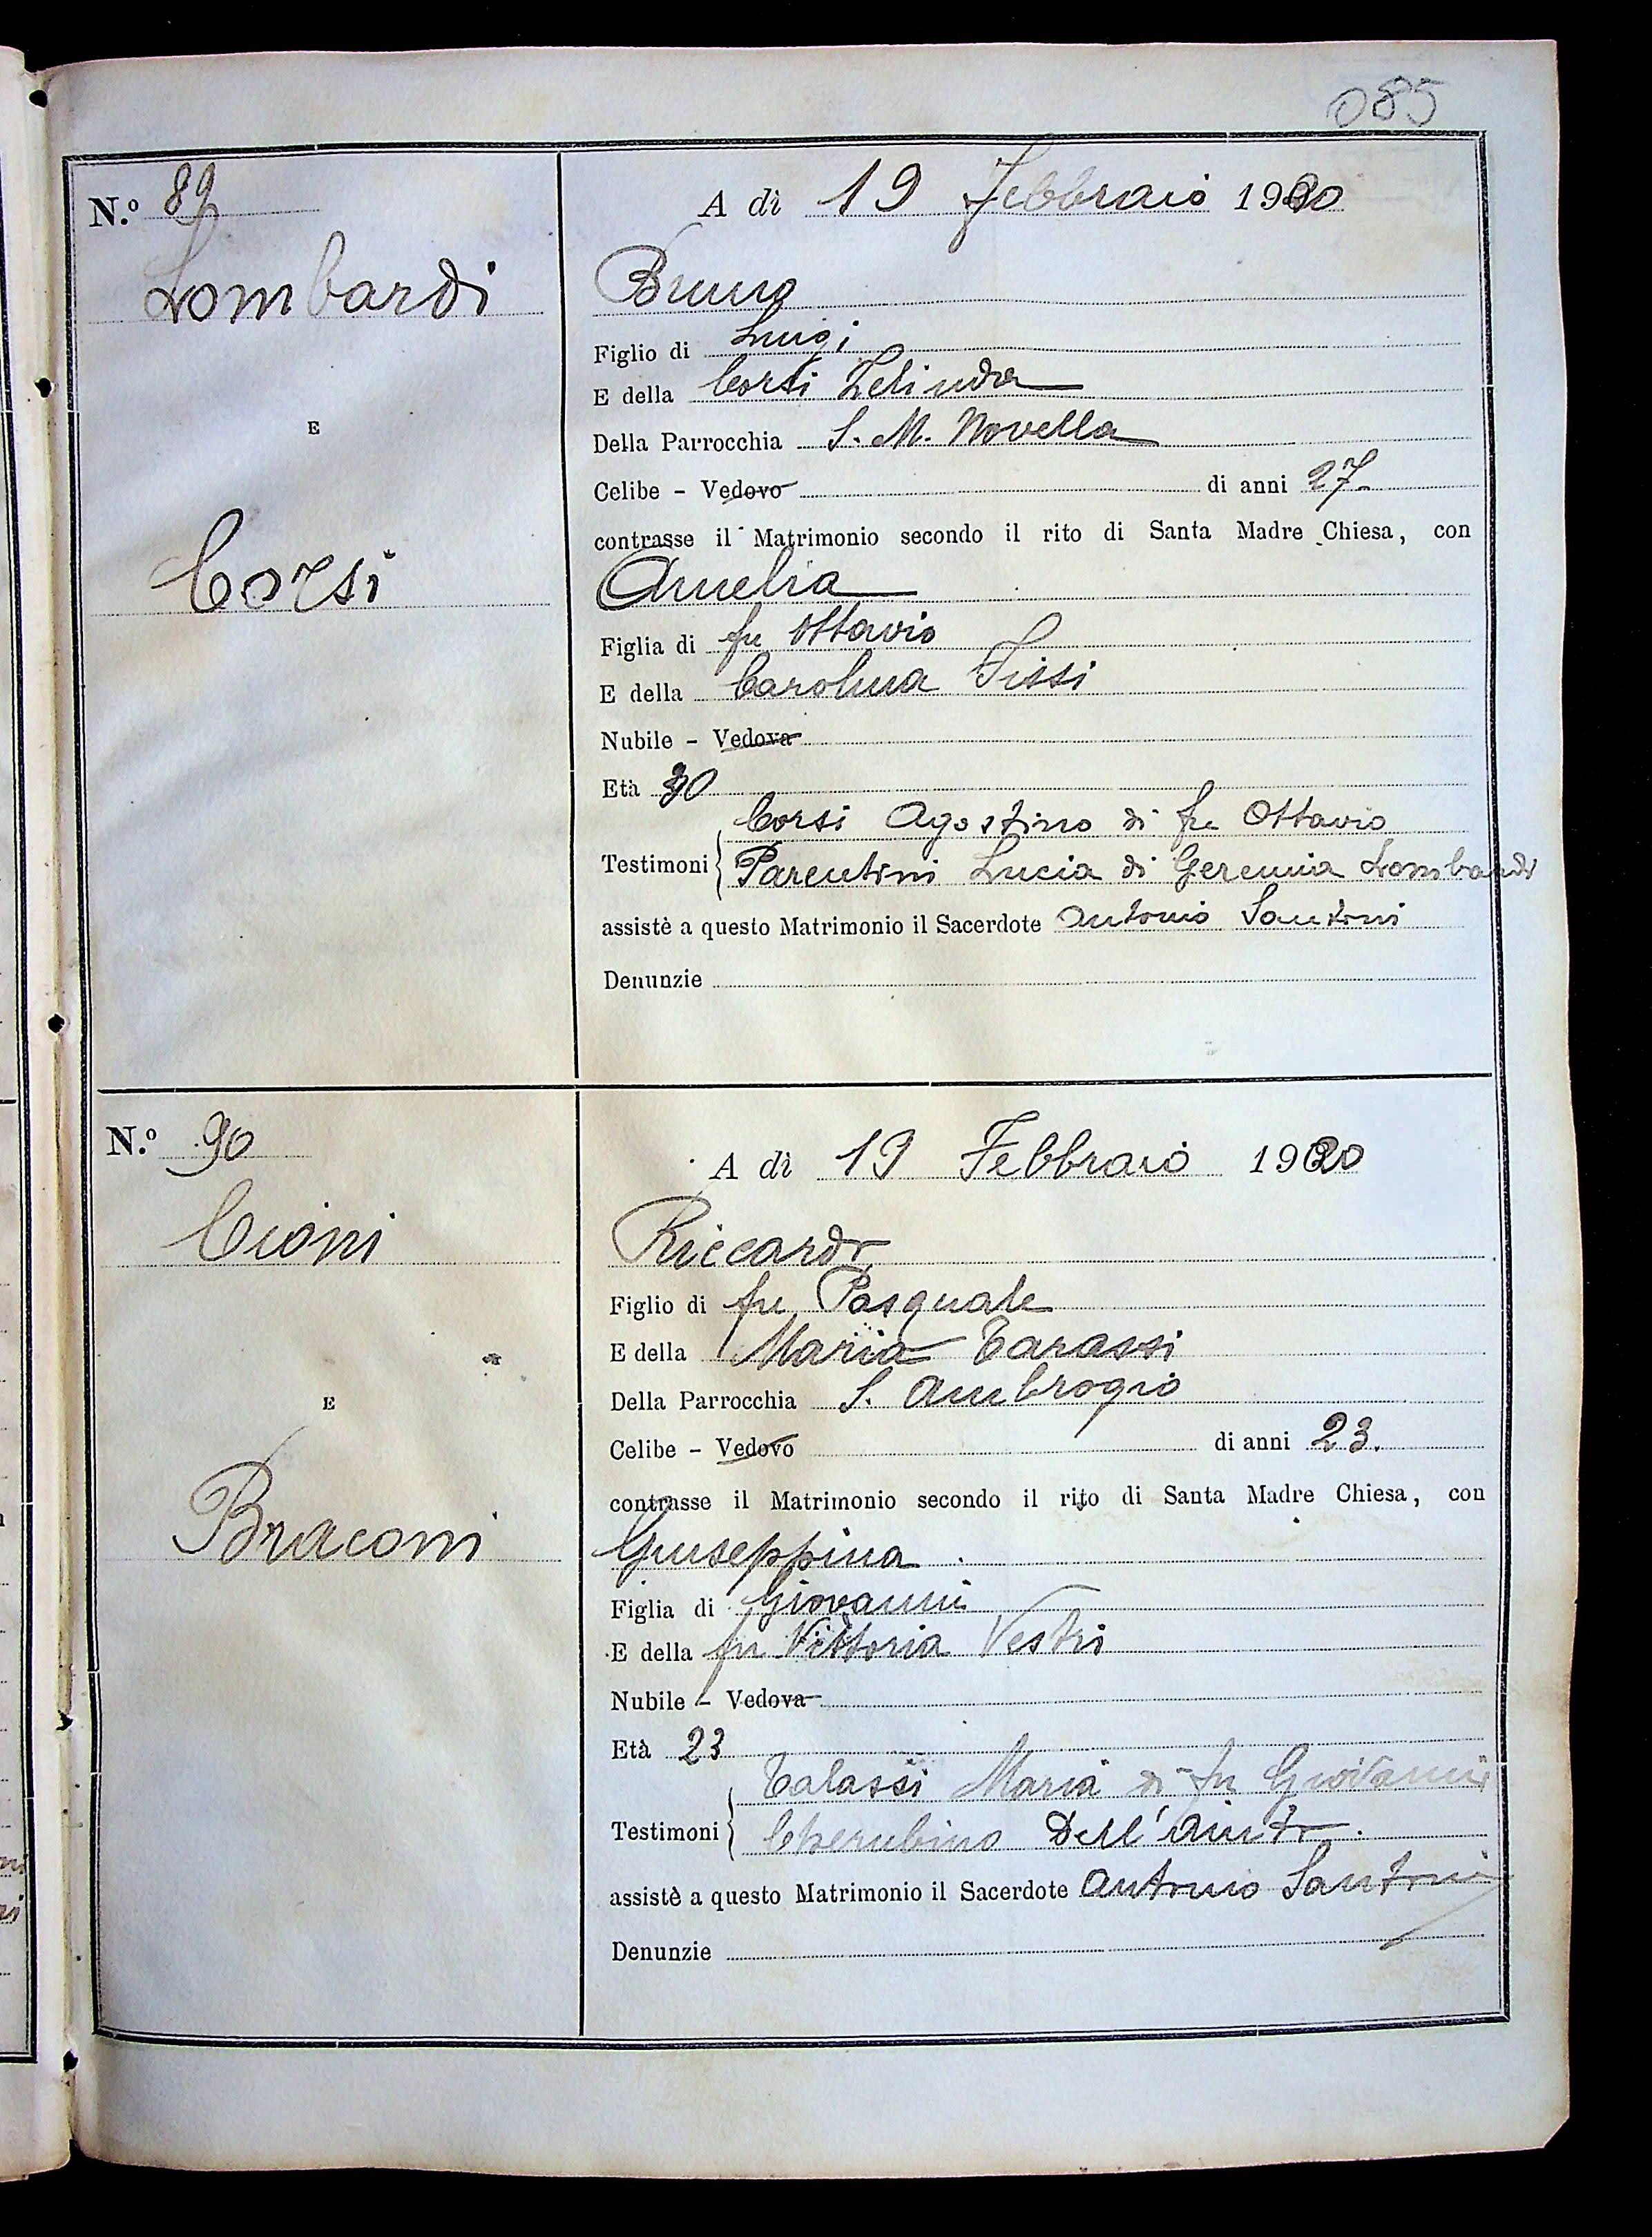 085
N.º 89
A dì 19 Febbraio 1920
Lombardi
Bruno
Figlio di Luigi
E della Corsi Zelinda
Della Parrocchia S. M. Novella
E
Celibe - Vedovo di anni 27
contrasse il Matrimonio secondo il rito di Santa Madre Chiesa, con
Corsi
Amelia
Figlia di fu Ottavio
E della Carolina Fissi
Nubile - Vedova
Età 30
Corsi Agostino di fu Ottavio
Testimoni Parentini Lucia di Geremia Lombardi
assistè a questo Matrimonio il Sacerdote Antonio Santoni
Denunzie
N.º 90
A dì 19 Febbraio 1920
Cioni
Riccardo
Figlio di fu Pasquale
E della Maria Tarassi
Della Parrocchia S. Ambrogio
E
Celibe - Vedovo di anni 23.
contrasse il Matrimonio secondo il rito di Santa Madre Chiesa, con
Braconi
Giuseppina
Figlia di Giovanni
E della fu Vittoria Vestri
Nubile - Vedova
Età 23
Talassi Maria di fu Giovanni
Testimoni Cherubino Dell'
assistè a questo Matrimonio il Sacerdote Antonio Santoni
Denunzie